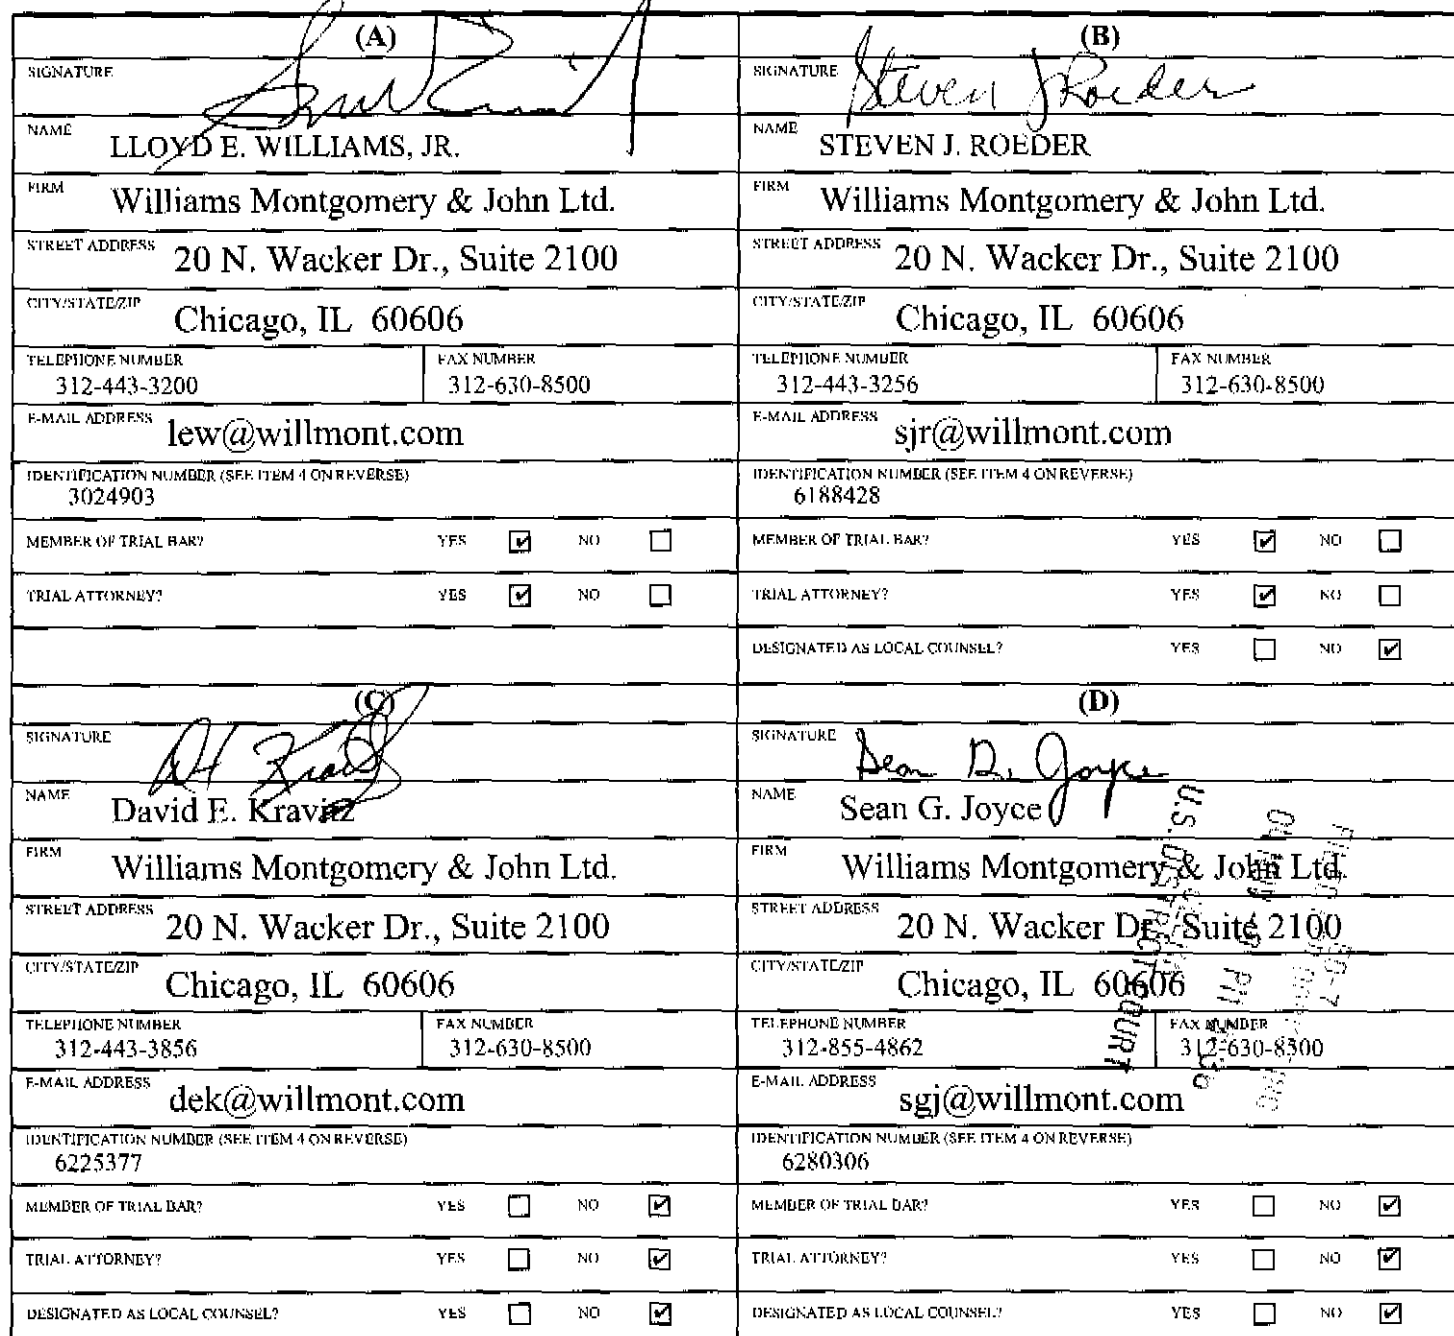 (A)
SIGNATURE
NAME
LLOYD E. WILLIAMS, JR.
FIRM
Williams Montgomery & John Ltd.
STREET ADDRESS
20 N. Wacker Dr., Suite 2100
CITY/STATE/ZIP
Chicago, IL 60606
TELEPHONE NUMBER
312-443-3200
FAX NUMBER
312-630-8500
E-MAIL ADDRESS
lew@willmont.com
IDENTIFICATION NUMBER (SEE ITEM 4 ON REVERSE)
3024903
MEMBER OF TRIAL BAR? YES NO
TRIAL ATTORNEY? YES NO
(B)
SIGNATURE Steven J Roeder
NAME
STEVEN J. ROEDER
FIRM
Williams Montgomery & John Ltd.
STREET ADDRESS
20 N. Wacker Dr., Suite 2100
CITY/STATE/ZIP
Chicago, IL 60606
TELEPHONE NUMBER
312-443-3256
FAX NUMBER
312-630-8500
E-MAIL ADDRESS
sjr@willmont.com
IDENTIFICATION NUMBER (SEE ITEM 4 ON REVERSE)
6188428
MEMBER OF TRIAL BAR? YES NO
TRIAL ATTORNEY? YES NO
DESIGNATED AS LOCAL COUNSEL? YES NO
(C)
SIGNATURE
NAME
David E. Kravitz
FIRM
Williams Montgomery & John Ltd.
STREET ADDRESS
20 N. Wacker Dr., Suite 2100
CITY/STATE/ZIP
Chicago, IL 60606
TELEPHONE NUMBER
312-443-3856
FAX NUMBER
312-630-8500
E-MAIL ADDRESS
dek@willmont.com
IDENTIFICATION NUMBER (SEE ITEM 4 ON REVERSE)
6225377
MEMBER OF TRIAL BAR? YES NO
TRIAL ATTORNEY? YES NO
DESIGNATED AS LOCAL COUNSEL? YES NO
(D)
SIGNATURE Sean G. Joyce
NAME
Sean G. Joyce
FIRM
Williams Montgomery & John Ltd.
STREET ADDRESS
20 N. Wacker Dr., Suite 2100
CITY/STATE/ZIP
Chicago, IL 60606
TELEPHONE NUMBER
312-855-4862
FAX NUMBER
312-630-8500
E-MAIL ADDRESS
sgj@willmont.com
IDENTIFICATION NUMBER (SEE ITEM 4 ON REVERSE)
6280306
MEMBER OF TRIAL BAR? YES NO
TRIAL ATTORNEY? YES NO
DESIGNATED AS LOCAL COUNSEL? YES NO
U.S. DISTRICT COURT